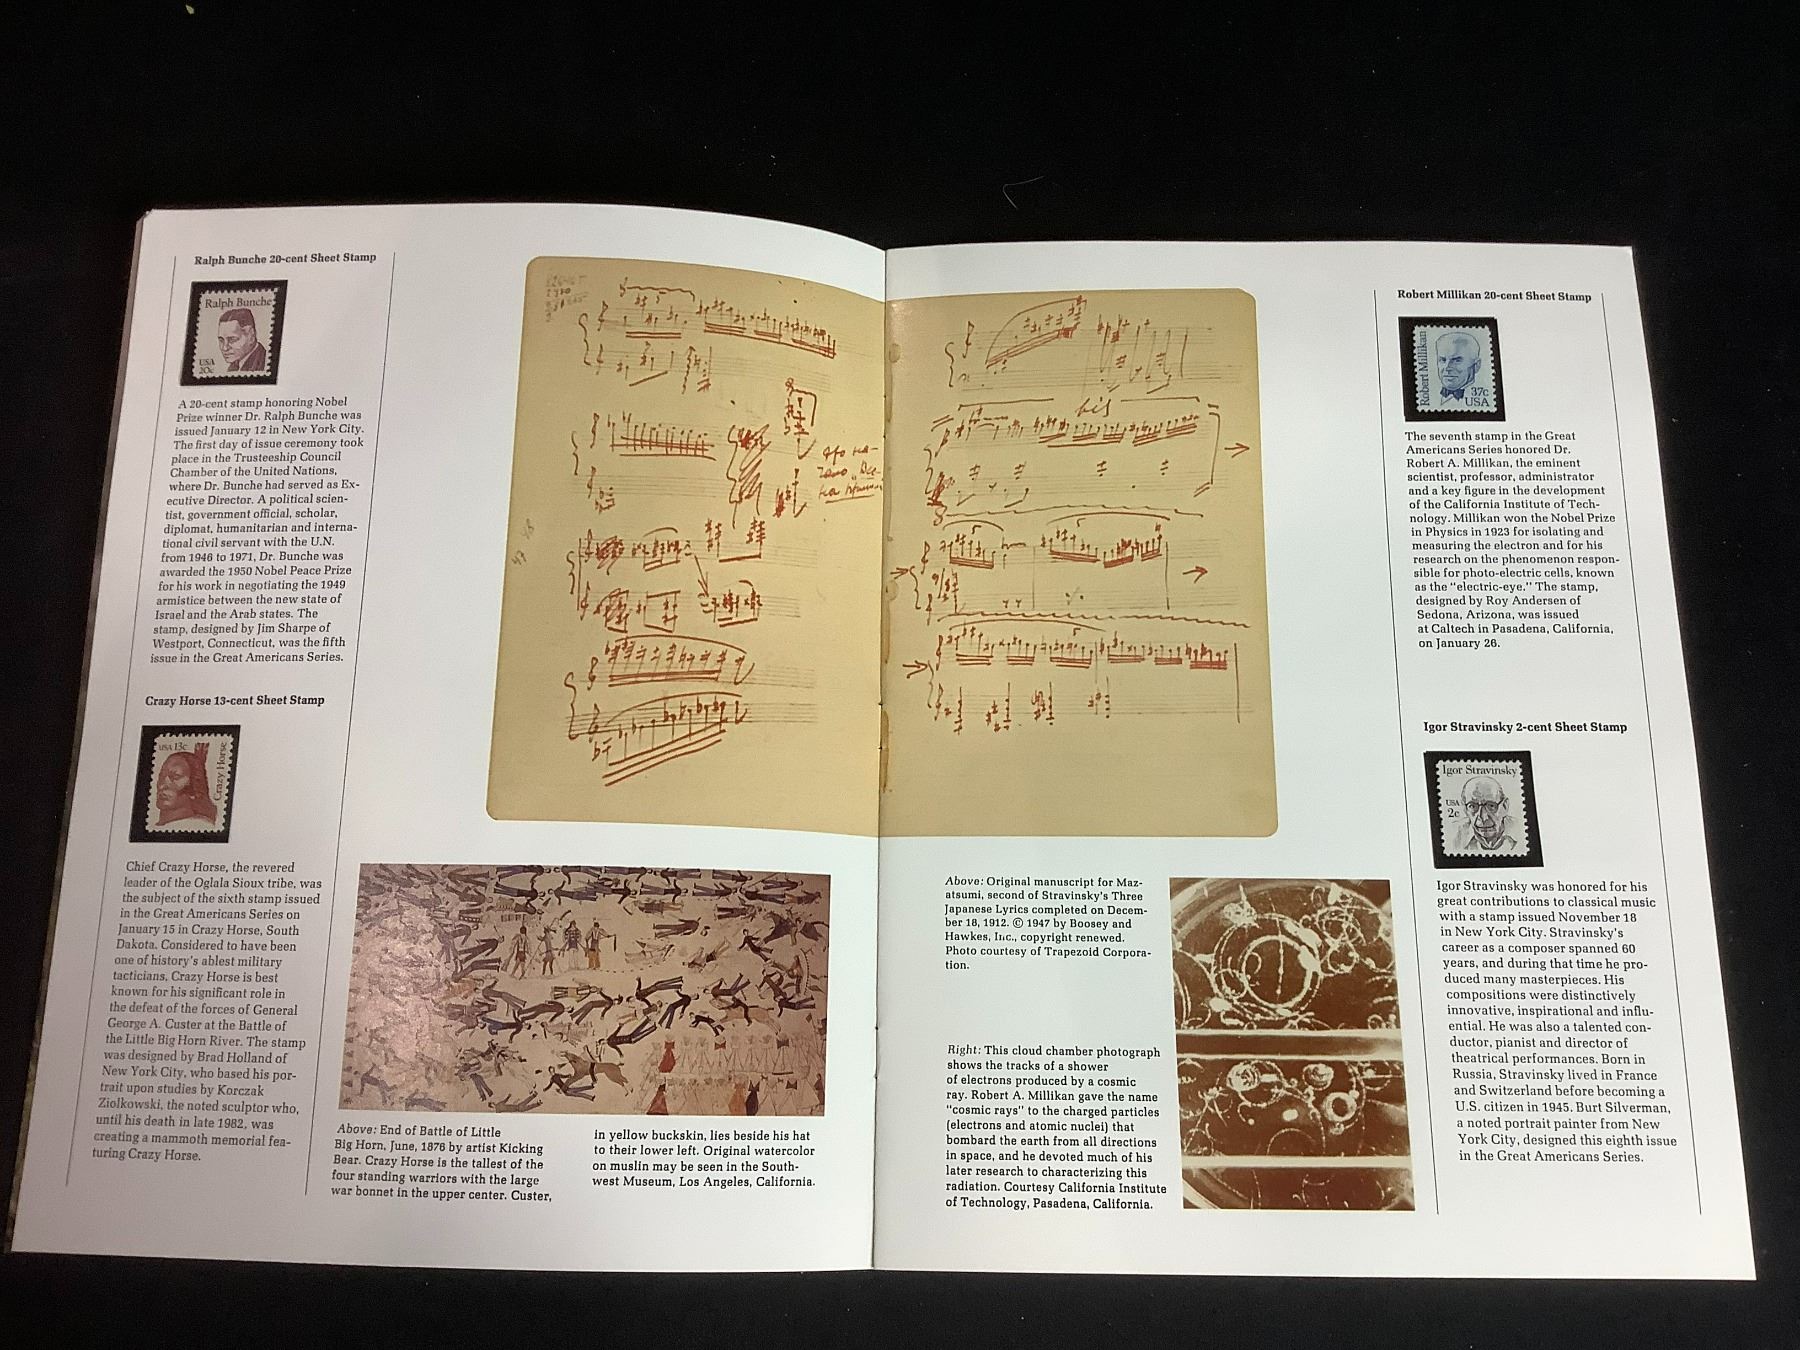 Ralph Bunche 20-cent Sheet Stamp
Ralph Bunche
USA
20c
A 20-cent stamp honoring Nobel
Prize winner Dr. Ralph Bunche was
issued January 12 in New York City.
The first day of issue ceremony took
place in the Trusteeship Council
Chamber of the United Nations,
where Dr. Bunche had served as Ex-
ecutive Director. A political scien-
tist, government official, scholar,
diplomat, humanitarian and interna-
tional civil servant with the U.N.
from 1946 to 1971, Dr. Bunche was
awarded the 1950 Nobel Peace Prize
for his work in negotiating the 1949
armistice between the new state of
Israel and the Arab states. The
stamp, designed by Jim Sharpe of
Westport, Connecticut, was the fifth
issue in the Great Americans Series.
Crazy Horse 13-cent Sheet Stamp
USA 13c
Crazy Horse
Chief Crazy Horse, the revered
leader of the Oglala Sioux tribe, was
the subject of the sixth stamp issued
in the Great Americans Series on
January 15 in Crazy Horse, South
Dakota. Considered to have been
one of history's ablest military
tacticians, Crazy Horse is best
known for his significant role in
the defeat of the forces of General
George A. Custer at the Battle of
the Little Big Horn River. The stamp
was designed by Brad Holland of
New York City, who based his por-
trait upon studies by Korczak
Ziolkowski, the noted sculptor who,
until his death in late 1982, was
creating a mammoth memorial fea-
turing Crazy Horse.
Above: End of Battle of Little
Big Horn, June, 1876 by artist Kicking
Bear. Crazy Horse is the tallest of the
four standing warriors with the large
war bonnet in the upper center. Custer,
in yellow buckskin, lies beside his hat
to their lower left. Original watercolor
on muslin may be seen in the South-
west Museum, Los Angeles, California.
bis
Above: Original manuscript for Maz-
atsumi, second of Stravinsky's Three
Japanese Lyrics completed on Decem-
ber 18, 1912. © 1947 by Boosey and
Hawkes, Inc., copyright renewed.
Photo courtesy of Trapezoid Corpora-
tion.
Right: This cloud chamber photograph
shows the tracks of a shower
of electrons produced by a cosmic
ray. Robert A. Millikan gave the name
"cosmic rays" to the charged particles
(electrons and atomic nuclei) that
bombard the earth from all directions
in space, and he devoted much of his
later research to characterizing this
radiation. Courtesy California Institute
of Technology, Pasadena, California.
Robert Millikan 20-cent Sheet Stamp
Robert Millikan
37c
USA
The seventh stamp in the Great
Americans Series honored Dr.
Robert A. Millikan, the eminent
scientist, professor, administrator
and a key figure in the development
of the California Institute of Tech-
nology. Millikan won the Nobel Prize
in Physics in 1923 for isolating and
measuring the electron and for his
research on the phenomenon respon-
sible for photo-electric cells, known
as the "electric-eye." The stamp,
designed by Roy Andersen of
Sedona, Arizona, was issued
at Caltech in Pasadena, California,
on January 26.
Igor Stravinsky 2-cent Sheet Stamp
Igor Stravinsky
USA
2c
Igor Stravinsky was honored for his
great contributions to classical music
with a stamp issued November 18
in New York City. Stravinsky's
career as a composer spanned 60
years, and during that time he pro-
duced many masterpieces. His
compositions were distinctively
innovative, inspirational and influ-
ential. He was also a talented con-
ductor, pianist and director of
theatrical performances. Born in
Russia, Stravinsky lived in France
and Switzerland before becoming a
U.S. citizen in 1945. Burt Silverman,
a noted portrait painter from New
York City, designed this eighth issue
in the Great Americans Series.